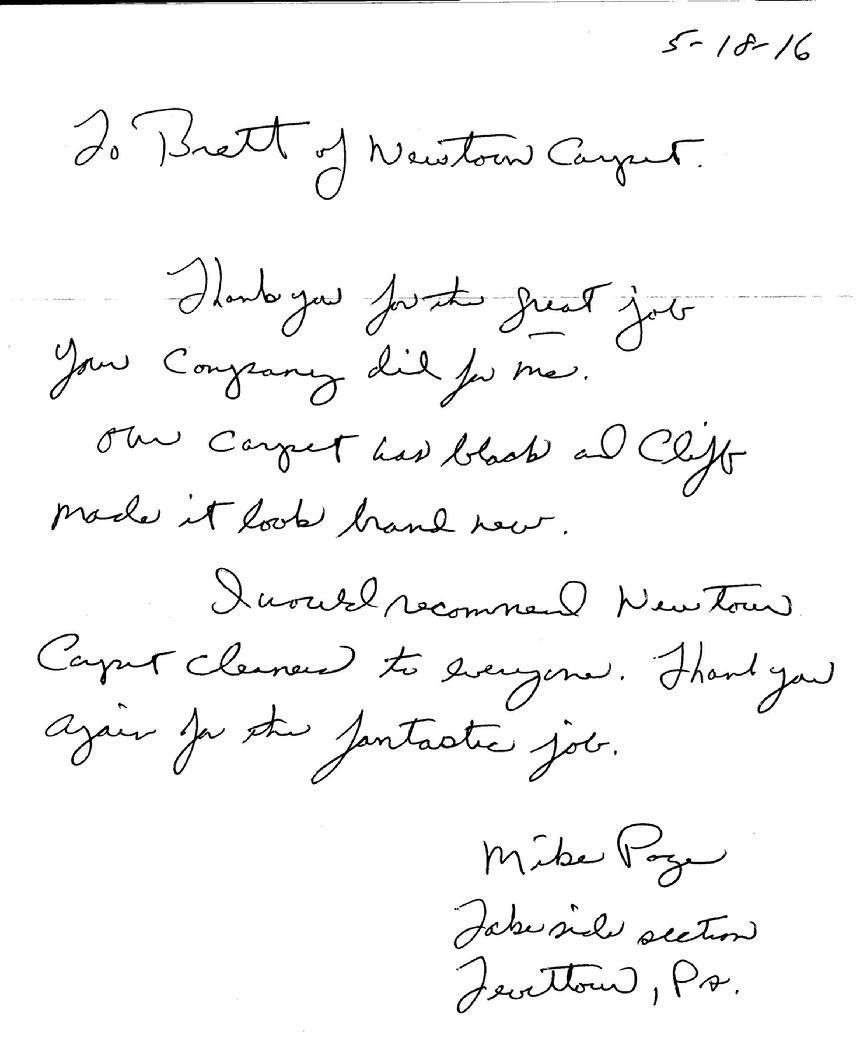 5-18-16
To Brett of Newtown Carpet.
Thank you for the great job
your Company did for me.
Our carpet was black and Cliff
made it look brand new.
I would recommend Newtown
Carpet cleaners to everyone. Thank you
again for the fantastic job.
Mike Page
Lakeside section
Levittown, Pa.